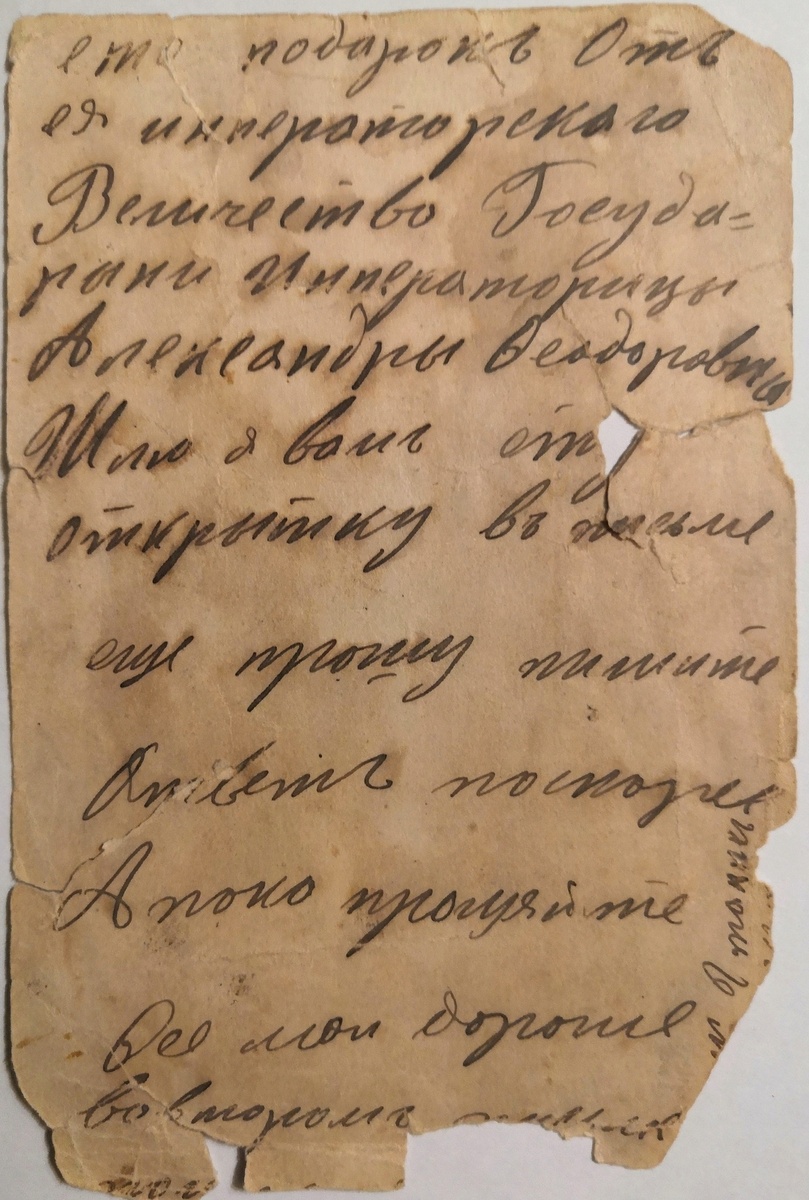 ето подарокъ Отъ
ея императорскаго
Величество Госуда=
рыни Императорицы
Александры Феодоровны
Шлю я вамъ ету
открытку въ письме
еще прошу пишите
Ответъ поскорее
А поко прощяйте
Все мои дорогие
Вовторомъ